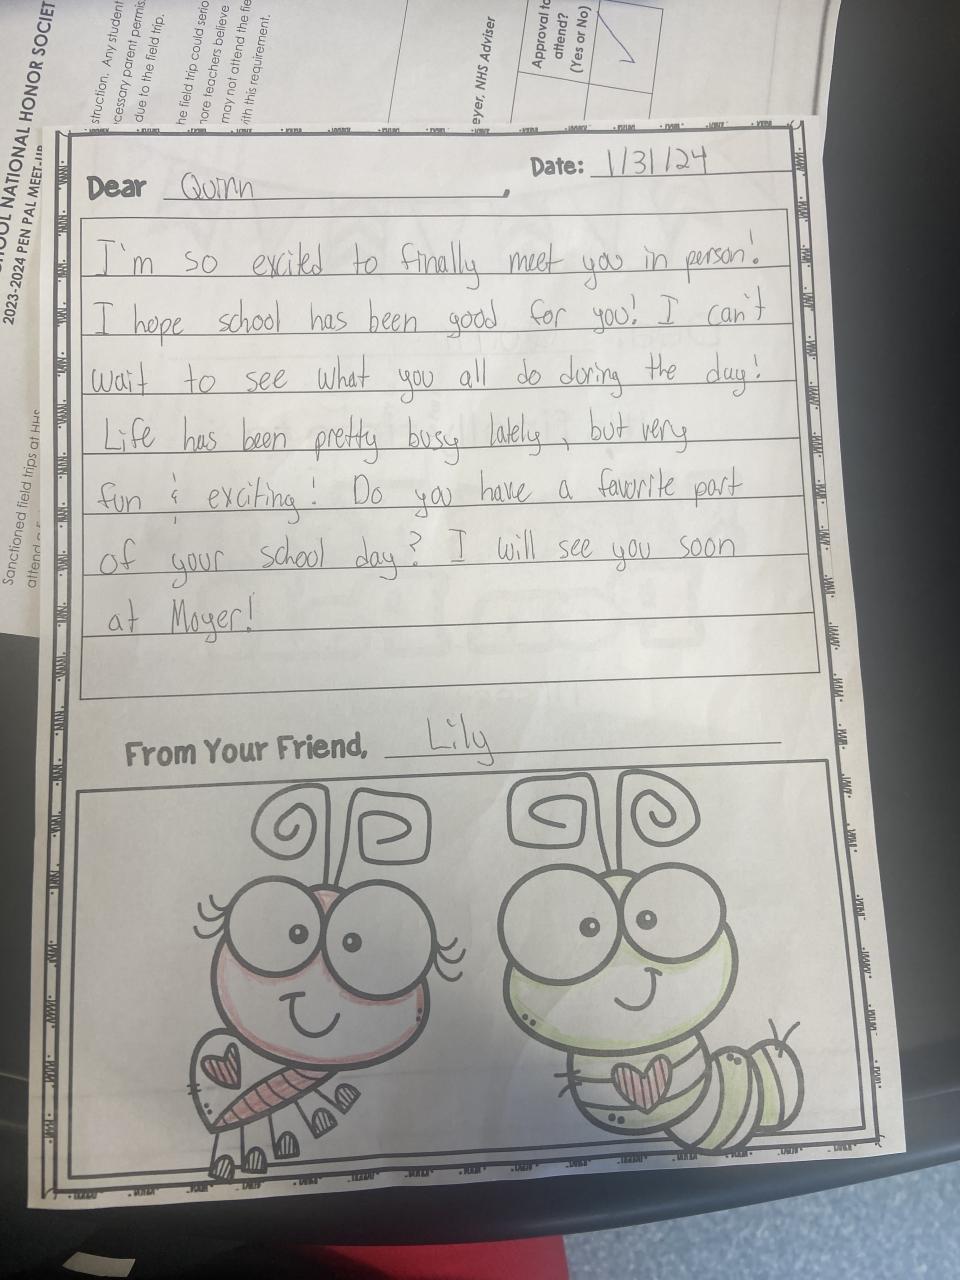 OOL NATIONAL HONOR SOCIET
2023-2024 PEN PAL MEET-UP
struction. Any student
cessary parent permis
due to the field trip.
he field trip could serio
nore teachers believe
may not attend the fie
ith this requirement.
eyer, NHS Adviser
Approval to
attend?
(Yes or No)
Sanctioned field trips at HHS
attend
Date: 1/31/24
Dear Quinn,
I'm so excited to finally meet you in person!
I hope school has been good for you! I can't
wait to see what you all do during the day!
Life has been pretty busy lately, but very
fun & exciting! Do you have a favorite part
of your school day? I will see you soon
at Moyer!
From Your Friend, Lily